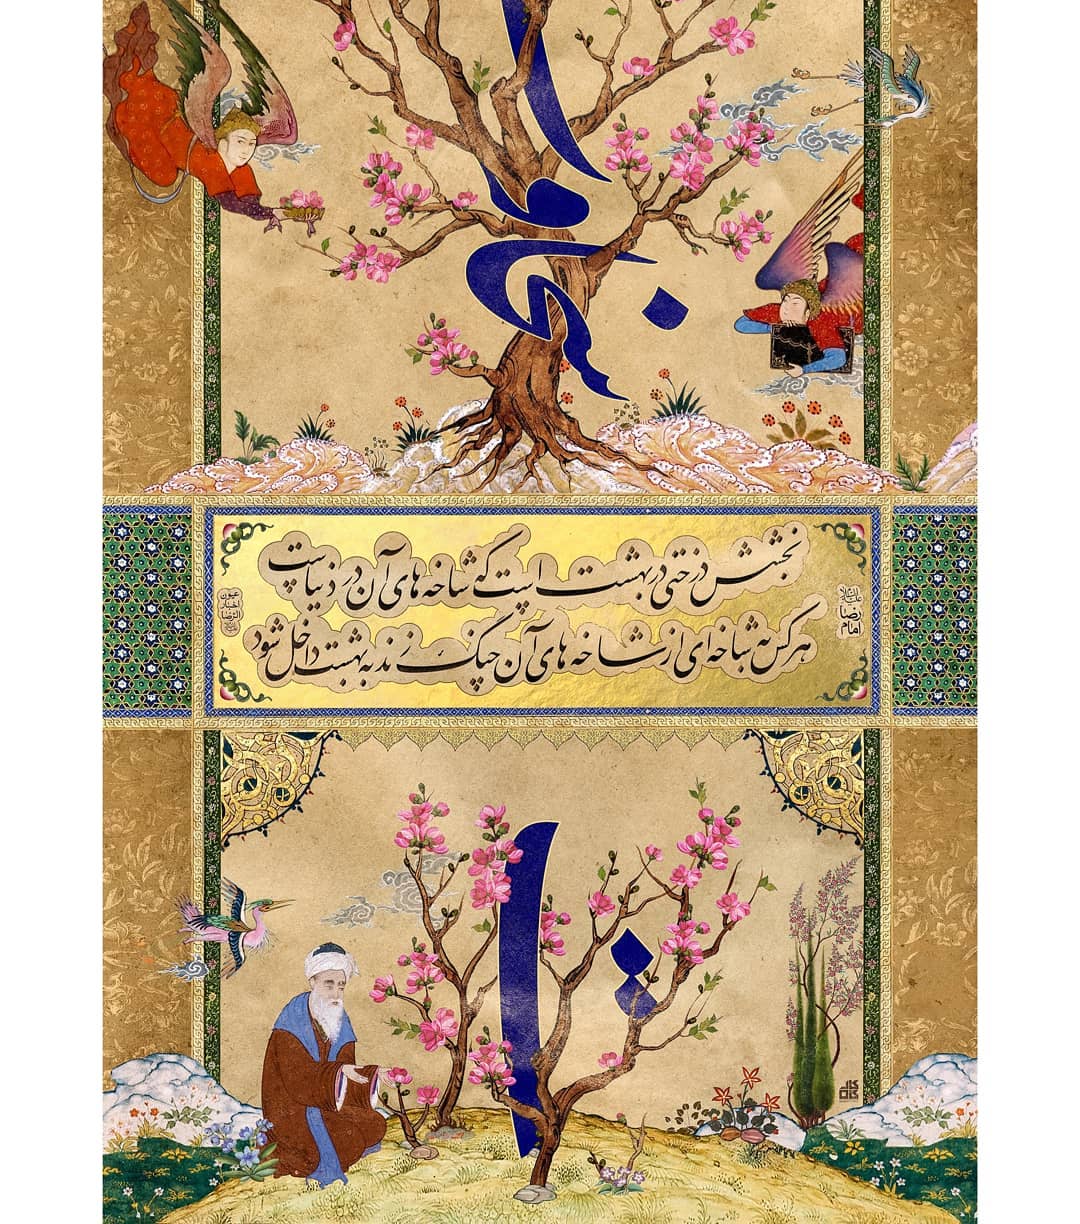 بخشش درختی در بهشت است که شاخه های آن در دنیاست
هر کس به شاخه ای از شاخه های آن چنگ زند به بهشت داخل شود
امام رضا علیه السلام
عیون اخبار الرضا